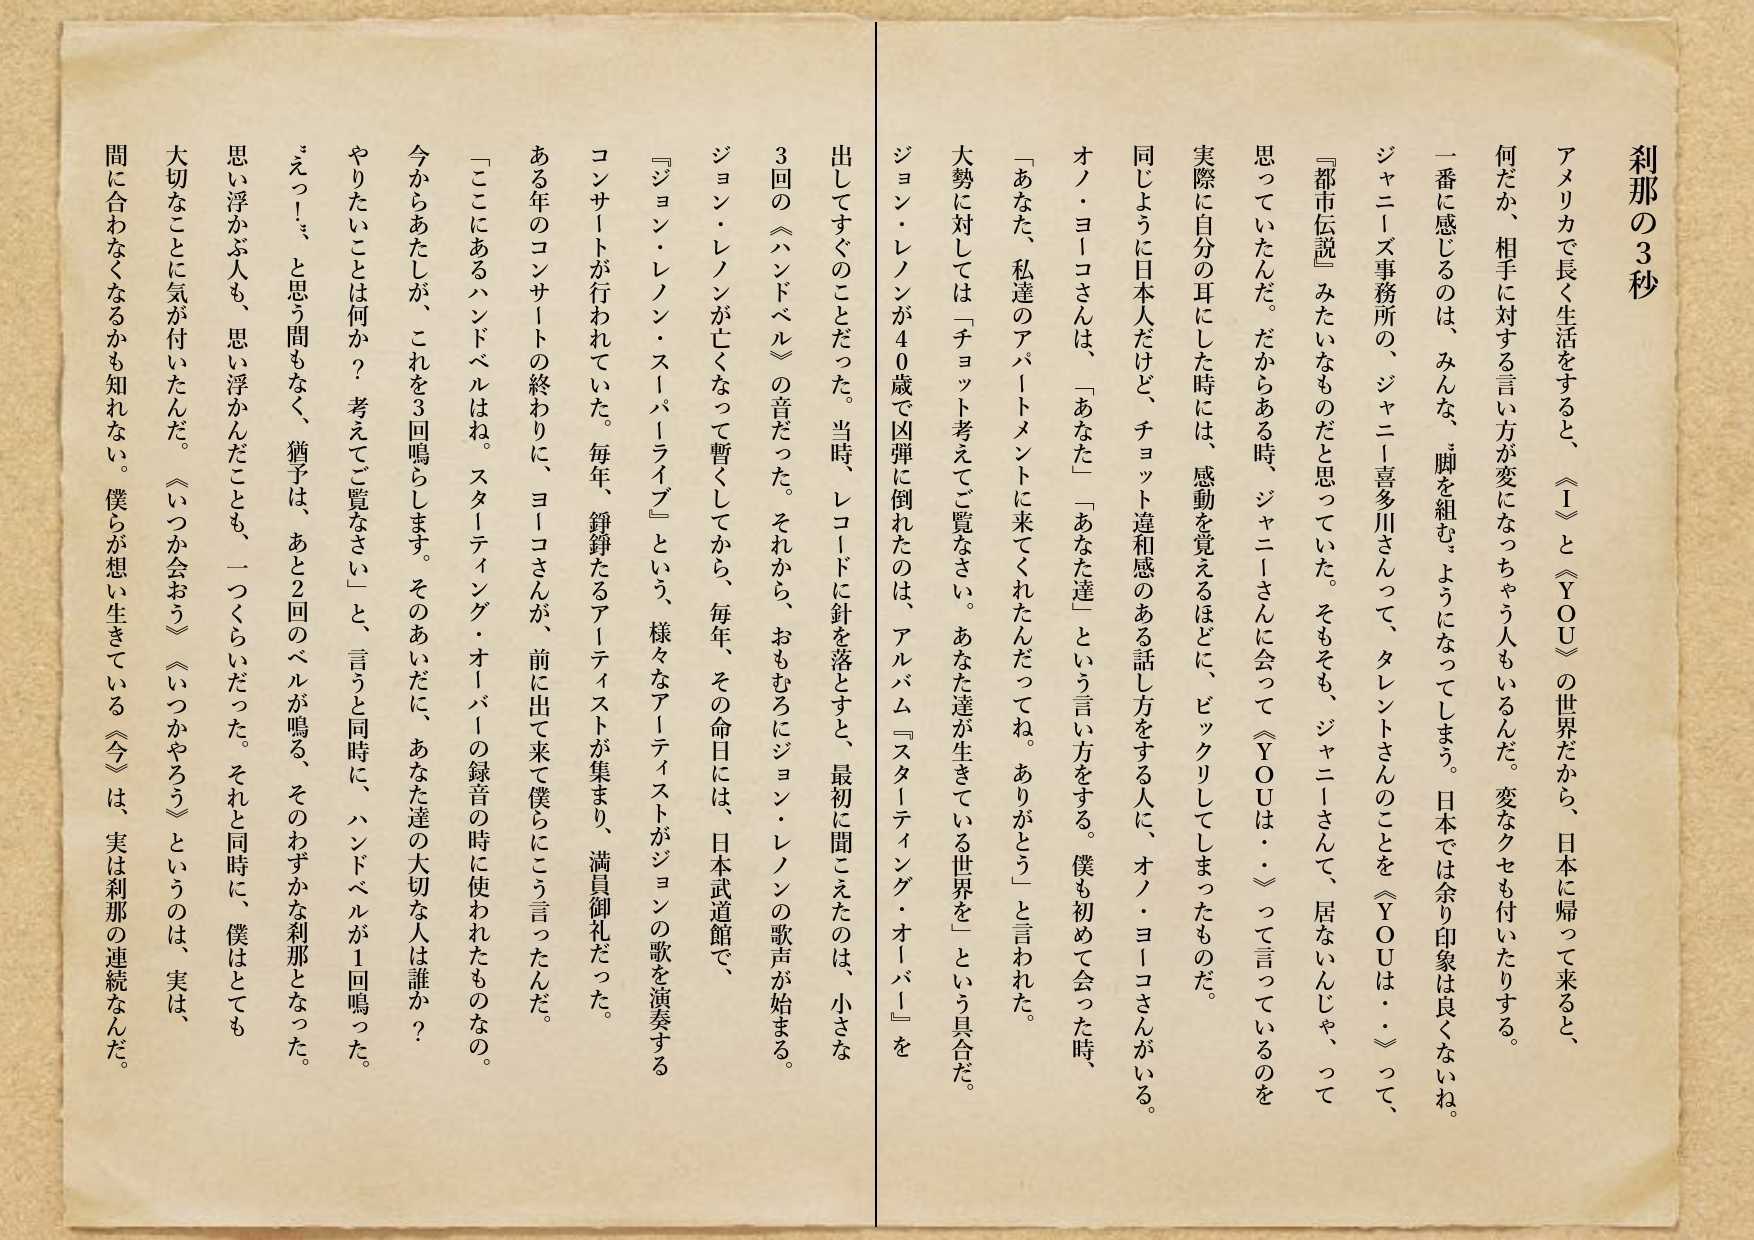 刹那の３秒
アメリカで長く生活をすると、《Ｉ》と《ＹＯＵ》の世界だから、日本に帰って来ると、
何だか、相手に対する言い方が変になっちゃう人もいるんだ。変なクセも付いたりする。
一番に感じるのは、みんな、〝脚を組む〟ようになってしまう。日本では余り印象は良くないね。
ジャニーズ事務所の、ジャニー喜多川さんって、タレントさんのことを《ＹＯＵは・・》って、
『都市伝説』みたいなものだと思っていた。そもそも、ジャニーさんて、居ないんじゃ、って
思っていたんだ。だからある時、ジャニーさんに会って《ＹＯＵは・・》って言っているのを
実際に自分の耳にした時には、感動を覚えるほどに、ビックリしてしまったものだ。
同じように日本人だけど、チョット違和感のある話し方をする人に、オノ・ヨーコさんがいる。
オノ・ヨーコさんは、「あなた」「あなた達」という言い方をする。僕も初めて会った時、
「あなた、私達のアパートメントに来てくれたんだってね。ありがとう」と言われた。
大勢に対しては「チョット考えてご覧なさい。あなた達が生きている世界を」という具合だ。
ジョン・レノンが４０歳で凶弾に倒れたのは、アルバム『スターティング・オーバー』を
出してすぐのことだった。当時、レコードに針を落とすと、最初に聞こえたのは、小さな
３回の《ハンドベル》の音だった。それから、おもむろにジョン・レノンの歌声が始まる。
ジョン・レノンが亡くなって暫くしてから、毎年、その命日には、日本武道館で、
『ジョン・レノン・スーパーライブ』という、様々なアーティストがジョンの歌を演奏する
コンサートが行われていた。毎年、錚錚たるアーティストが集まり、満員御礼だった。
ある年のコンサートの終わりに、ヨーコさんが、前に出て来て僕らにこう言ったんだ。
「ここにあるハンドベルはね。スターティング・オーバーの録音の時に使われたものなの。
今からあたしが、これを３回鳴らします。そのあいだに、あなた達の大切な人は誰か？
やりたいことは何か？ 考えてご覧なさい」と、言うと同時に、ハンドベルが１回鳴った。
〝えっ！〟、と思う間もなく、猶予は、あと２回のベルが鳴る、そのわずかな刹那となった。
思い浮かぶ人も、思い浮かんだことも、一つくらいだった。それと同時に、僕はとても
大切なことに気が付いたんだ。《いつか会おう》《いつかやろう》というのは、実は、
間に合わなくなるかも知れない。僕らが想い生きている《今》は、実は刹那の連続なんだ。